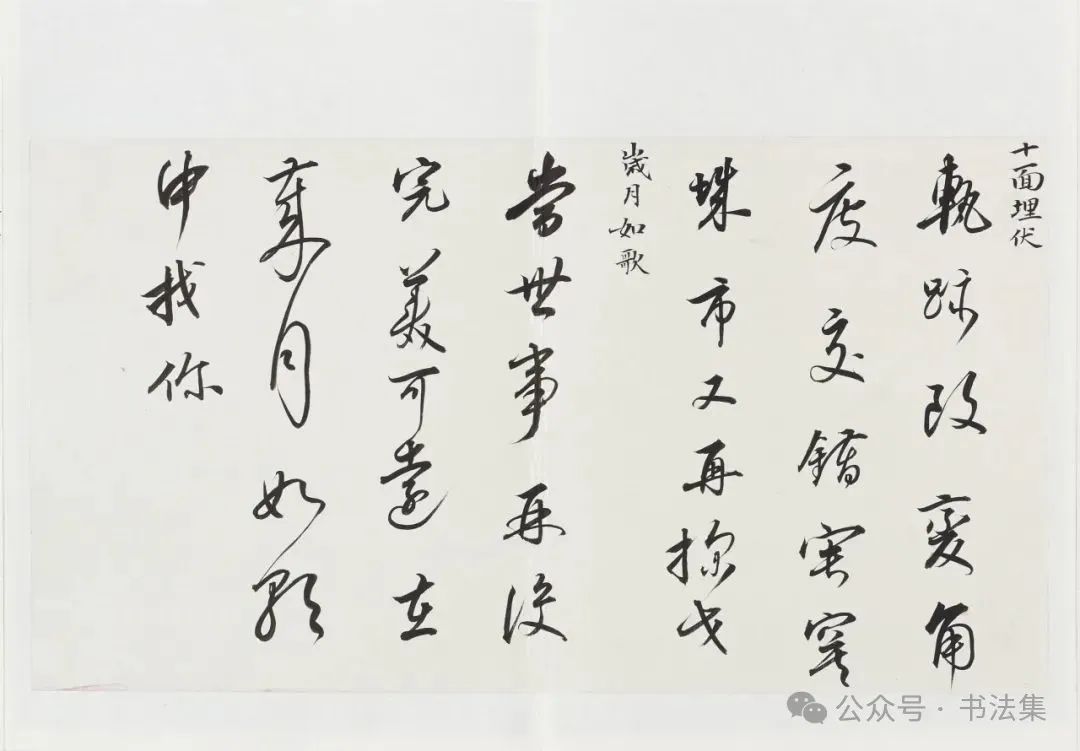 十面埋伏
軌跡改變角
度交錯寂寞
城市又再探戈
歲月如歌
當世事再沒
完美可遠在
歲月如歌
中找你
公众号·书法集